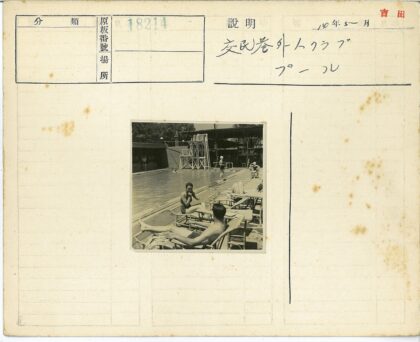 分類
原板番號
場所
18214
説明
吉田
14年5~月
交民巷外人クラブ
プール